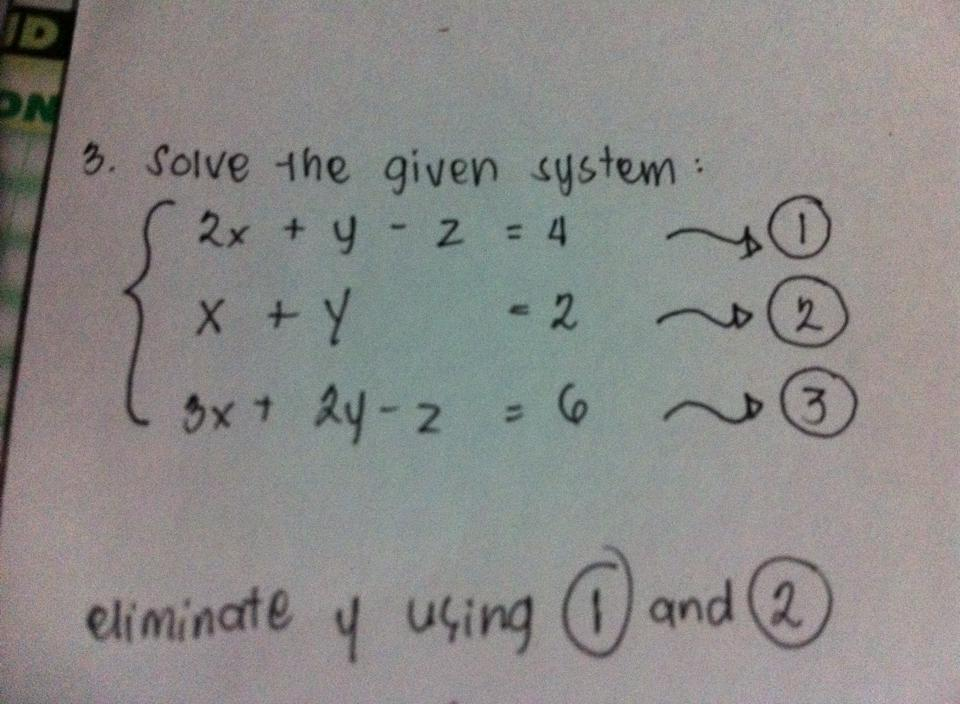 ID
ON
3. Solve the given system:
2x + y - z = 4 → ①
x + y = 2 → ②
3x + 2y - z = 6 → ③
eliminate y using ① and ②